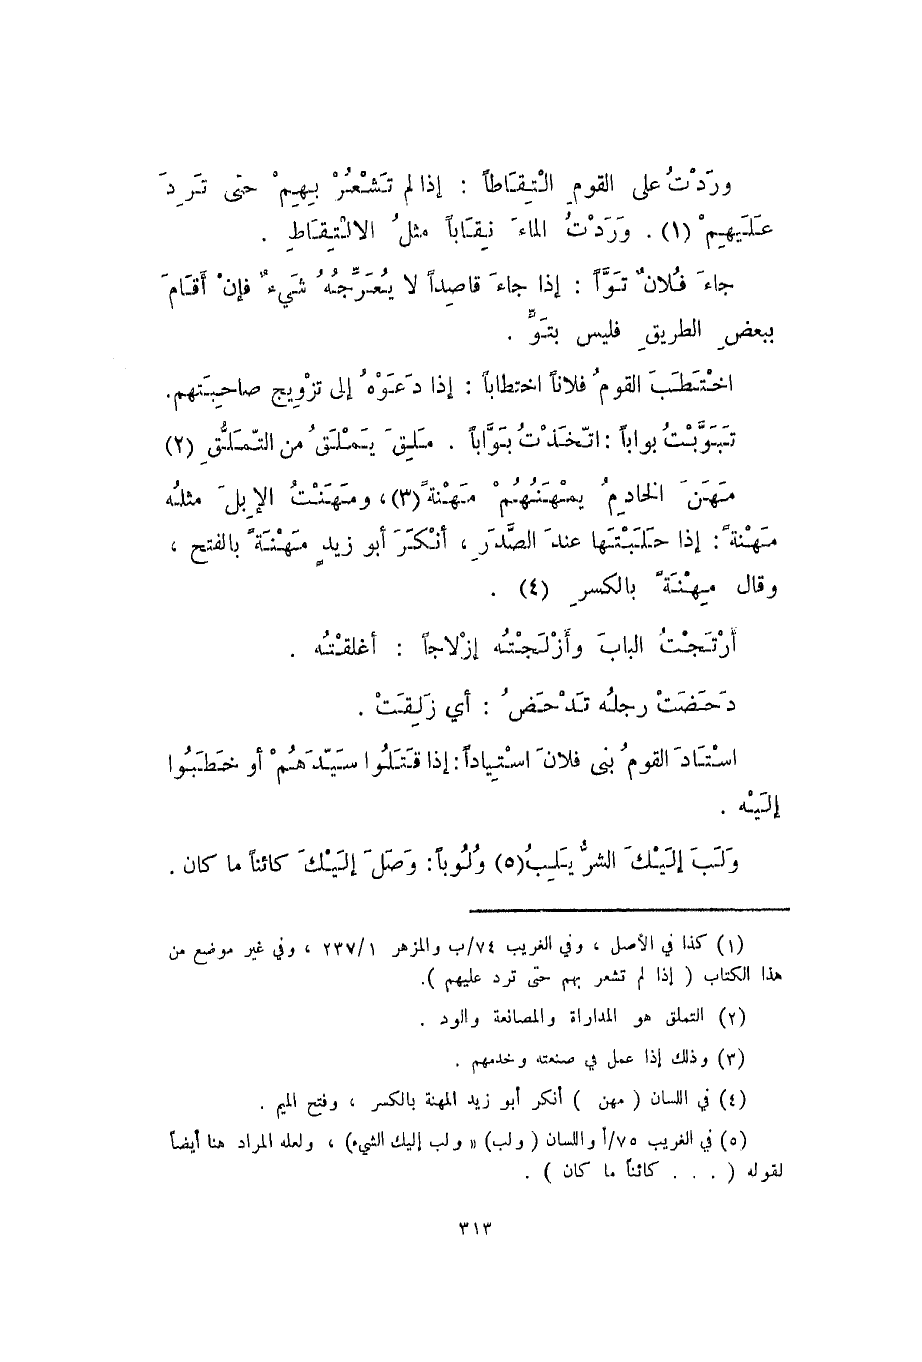 ورَدْتُ على القومِ الْتِقَاطاً : إذا لم تَشْعُرْ بِهِمْ حتى تَرِدَ
عَلَيهِمْ (١) . وَرَدْتُ الماءَ نِقَاباً مثلُ الالْتِقَاطِ .
جاءَ فُلانٌ تَوَّاً : إذا جاءَ قاصِداً لا يُعَرِّجُهُ شَيءٌ فإنْ أقَامَ
ببعضِ الطريقِ فليس بتَوٍّ .
اخْتَطَبَ القومُ فلاناً اختطاباً : إذا دَعَوْهُ إلى تزْوِيج صاحِبَتهم.
تَبَوَّبْتُ بواباً : اتّخَذْتُ بَوَّاباً . مَلِقَ يَمْلَقُ من التّمَلُّقِ (٢)
مَهَنَ الخادِمُ يمْهَنُهُمْ مَهْنَةً (٣)، ومَهَنْتُ الإبلَ مثلُه
مَهْنَةً : إذا حَلَبْتَها عندَ الصَّدَرِ ، أنْكَرَ أبو زيدٍ مَهْنَةً بالفتح ،
وقال مِهْنَةً بالكسرِ (٤) .
أرْتَجْتُ البابَ وأَزْلَجْتُه إزْلاجاً : أغلقْتُه .
دَحَضَتْ رجلُه تَدْحَضُ : أي زَلِقَتْ .
اسْتَادَ القومُ بنى فلانَ اسْتِياداً : إذا قتَلُوا سيّدَهُمْ أو خَطَبُوا
إلَيْه .
وَلَبَ إلَيْكَ الشرُّ يَلِبُ (٥) وُلُوباً : وَصَلَ إلَيْكَ كائناً ما كان .
(١) كذا في الأصل ، وفي الغريب ٧٤/ب والمزهر ٢٣٧/١ ، وفي غير موضع من
هذا الكتاب ( إذا لم تشعر بهم حتى ترد عليهم ).
(٢) التملق هو المداراة والمصانعة والود .
(٣) وذلك إذا عمل في صنعته وخدمهم .
(٤) في اللسان ( مهن ) أنكر أبو زيد المهنة بالكسر ، وفتح الميم .
(٥) في الغريب ٧٥/أ واللسان ( ولب) « ولب إليك الشيء) ، ولعله المراد هنا أيضاً
لقوله ( . . . كائناً ما كان ) .
٣١٣